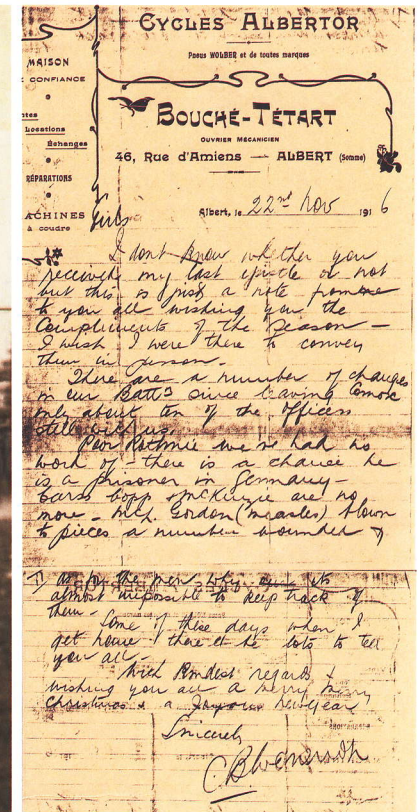 CYCLES ALBERTOR
Pneus WOLBER et de toutes marques
MAISON
CONFIANCE
Locations
Échanges
RÉPARATIONS
MACHINES
à coudre
BOUCHÉ-TÉTART
OUVRIER MÉCANICIEN
46, Rue d'Amiens — ALBERT (Somme)
Albert, le 22nd Nov 1916
Girls
I dont know whether you
received my last epistle or not
but this is just a note from me
to you all wishing you the
Compliments of the Season —
I wish I were there to convey
them in person.
There are a number of changes
in our Battn since leaving Comox
only about ten of the officers
still with us.
Poor Rothnie we've had no
word of - there is a chance he
is a prisoner in Germany -
Copp & McKenzie are no
more - Gordon (measles) blown
to pieces a number wounded &
as for the men why its
almost impossible to keep track of
them -
Some of these days when I
get home there'll be lots to tell
you all -
With Kindest regards &
wishing you all a merry merry
christmas & a Joyous New Year
Sincerely